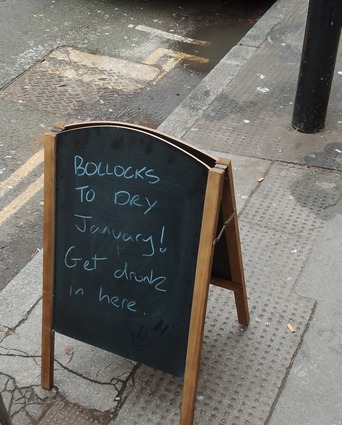 BOLLOCKS
TO DRY
January!
Get drunk
in here.